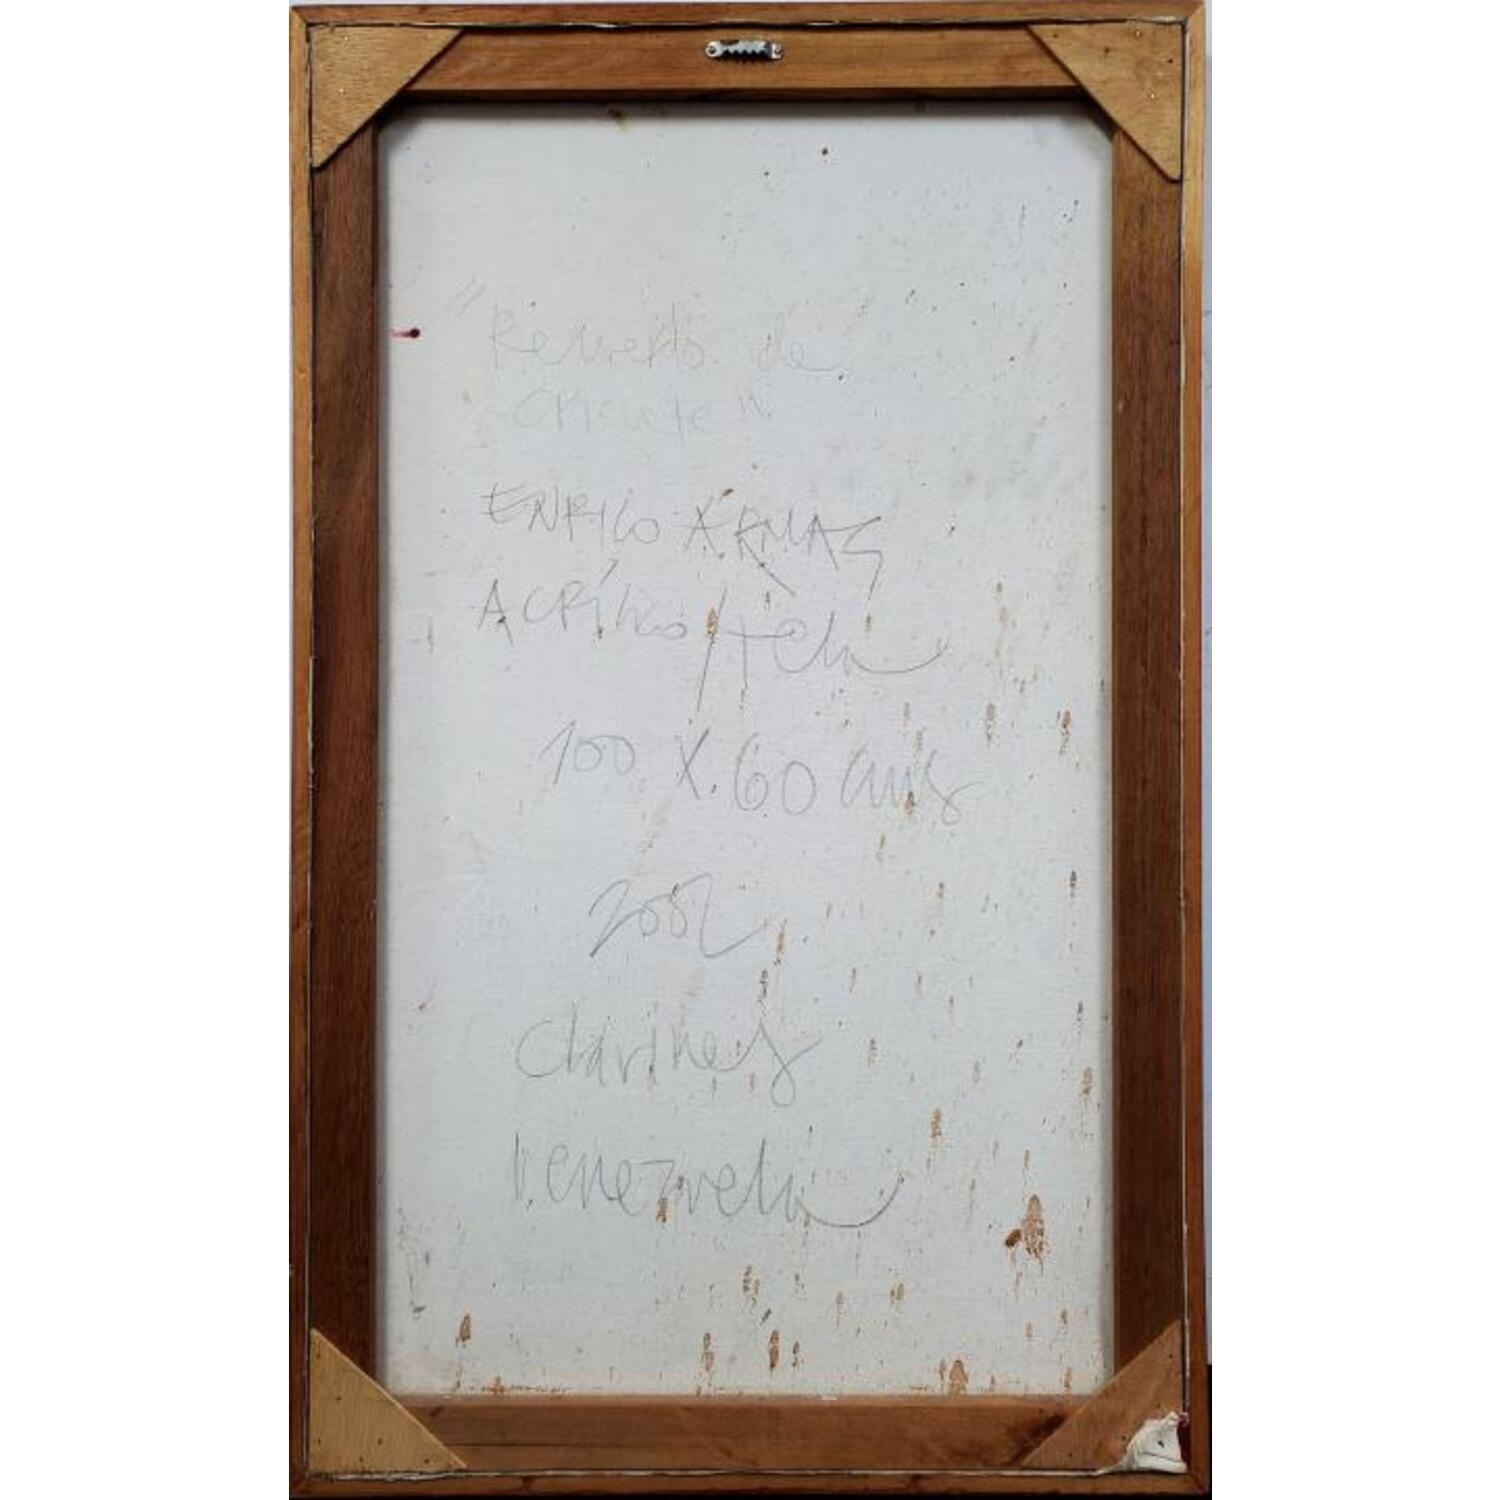 "Recuerdo de
Oriente".
ENRICO ARMAS
ACRÍLICO/tela
100 X 60 cms
2002
Clarines
Venezuela